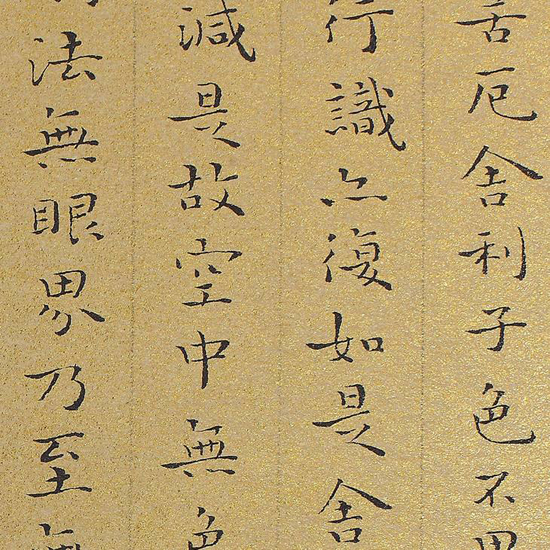 苦厄舍利子色不異
行識亦復如是舍
減是故空中無色
法無眼界乃至無